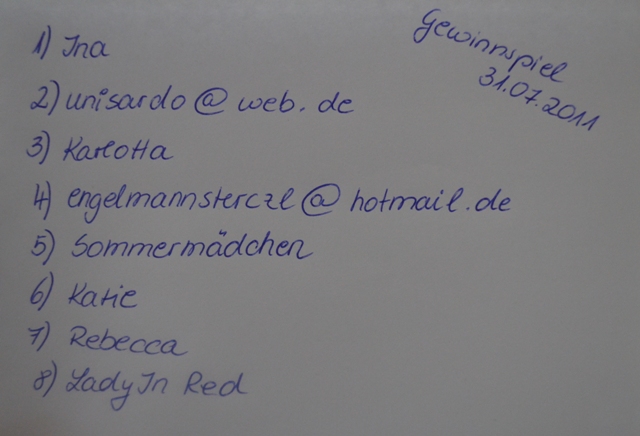 Gewinnspiel
31.07.2011
1) Ina
2) unisardo@web.de
3) Karlotta
4) engelmannsterczl@hotmail.de
5) Sommermädchen
6) Katie
7) Rebecca
8) Lady In Red